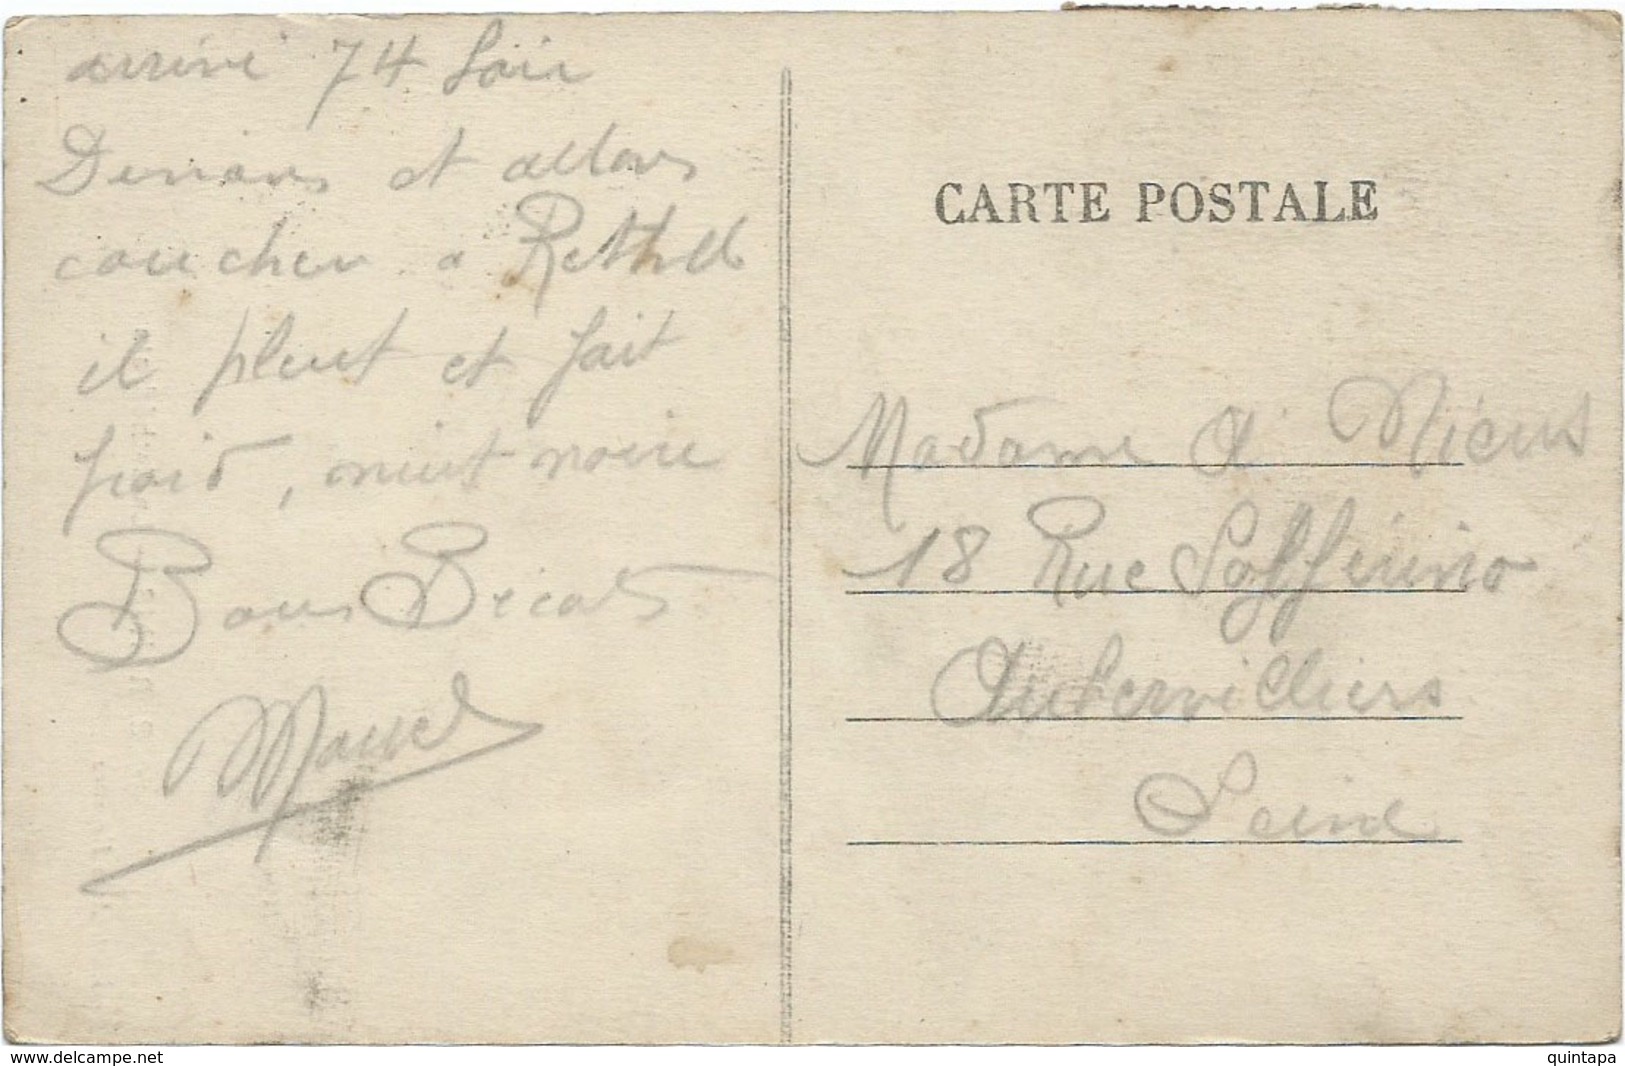 arrivé 7H Soir
Dinons et allons
coucher a Rethel
il pleut et fait
froid, nuit noire
Bons Bécots
Marcel
CARTE POSTALE
Madame A
18 Rue Solférino
Aubervilliers
Seine
www.delcampe.net
quintapa